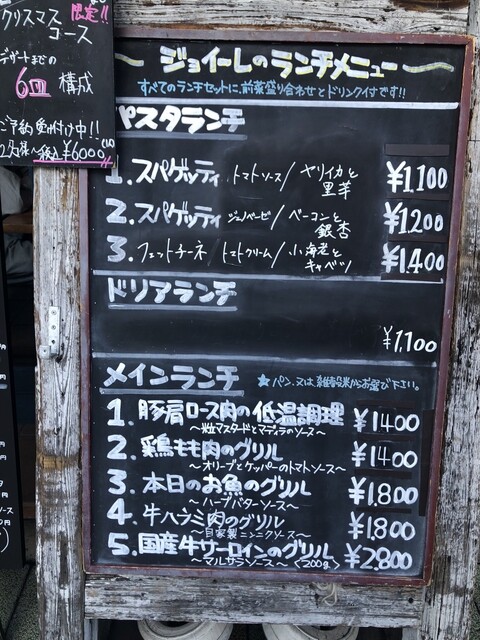 クリスマス 限定!!
コース
デザートまでの
6皿 構成
ご予約受け付け中!!
2名様〜税込¥6000
〜ジョイーレのランチメニュー〜
すべてのランチセットに、前菜盛り合わせとドリンク付です!!
パスタランチ
1. スパゲッティ トマトソース/ヤリイカと里芋 ¥1,100
2. スパゲッティ ジェノベーゼ/ベーコンと銀杏 ¥1,200
3. フェットチーネ トマトクリーム/小海老とキャベツ ¥1,400
ドリアランチ
¥1,100
メインランチ ★パン、又は、雑穀米からお選び下さい。
1. 豚肩ロース肉の低温調理 ¥1400
〜粒マスタードとマディラのソース〜
2. 鶏もも肉のグリル ¥1400
〜オリーブとケッパーのトマトソース〜
3. 本日のお魚のグリル ¥1,800
〜ハーブバターソース〜
4. 牛ハラミ肉のグリル ¥1,800
〜自家製ニンニクソース〜
5. 国産牛サーロインのグリル ¥2,800
〜マルサラソース〜〈200g〉